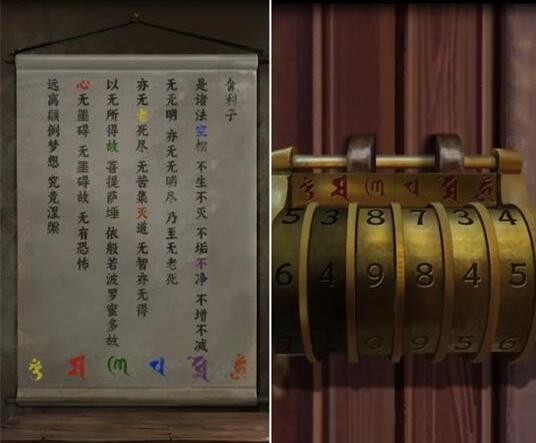 舍利子
是诸法空相 不生不灭 不垢不净 不增不减
无无明 亦无无明尽 乃至无老死
亦无老死尽 无苦集灭道 无智亦无得
以无所得故 菩提萨埵 依般若波罗蜜多故
心无墨碍 无墨碍故 无有恐怖
远离颠倒梦想 究竟涅槃
5 3 8 7 3 4
6 4 9 8 4 5
7 5 0 9 5 6